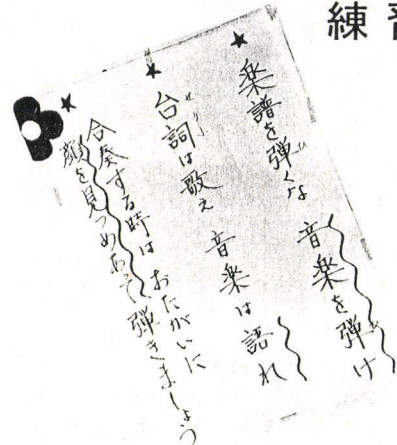 練
★ 楽譜を弾くな 音楽を弾け
★ 台詞は歌え 音楽は語れ
★ 合奏する時は おたがいに
顔を見つめあって 弾きましょう